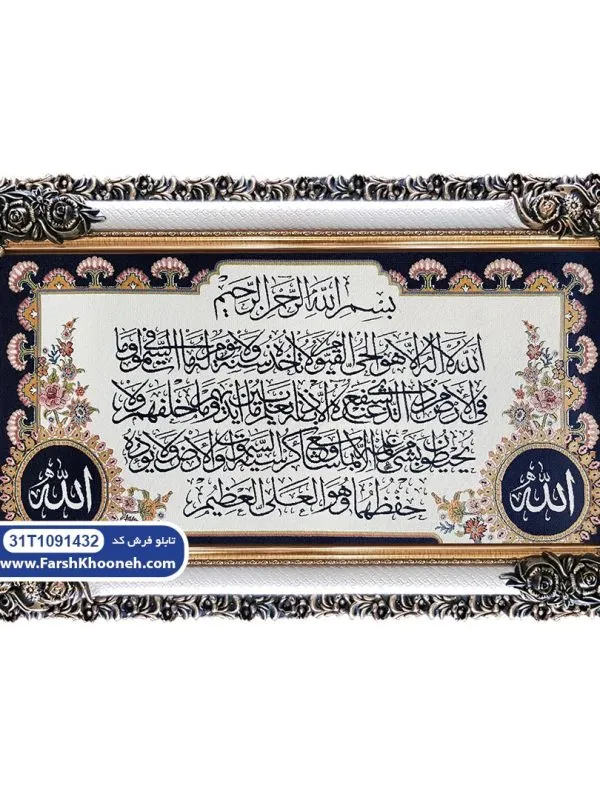 بسم الله الرحمن الرحيم
الله لا إله إلا هو الحي القيوم لا تأخذه سنة ولا نوم له ما في السموات وما
في الارض من ذا الذي يشفع عنده إلا بإذنه يعلم ما بين أيديهم وما خلفهم ولا
يحيطون بشيء من علمه إلا بما شاء وسع كرسيه السموات والأرض ولا يؤده
حفظهما وهو العلي العظيم
الله
الله
تابلو فرش کد 31T1091432
www.FarshKhooneh.com